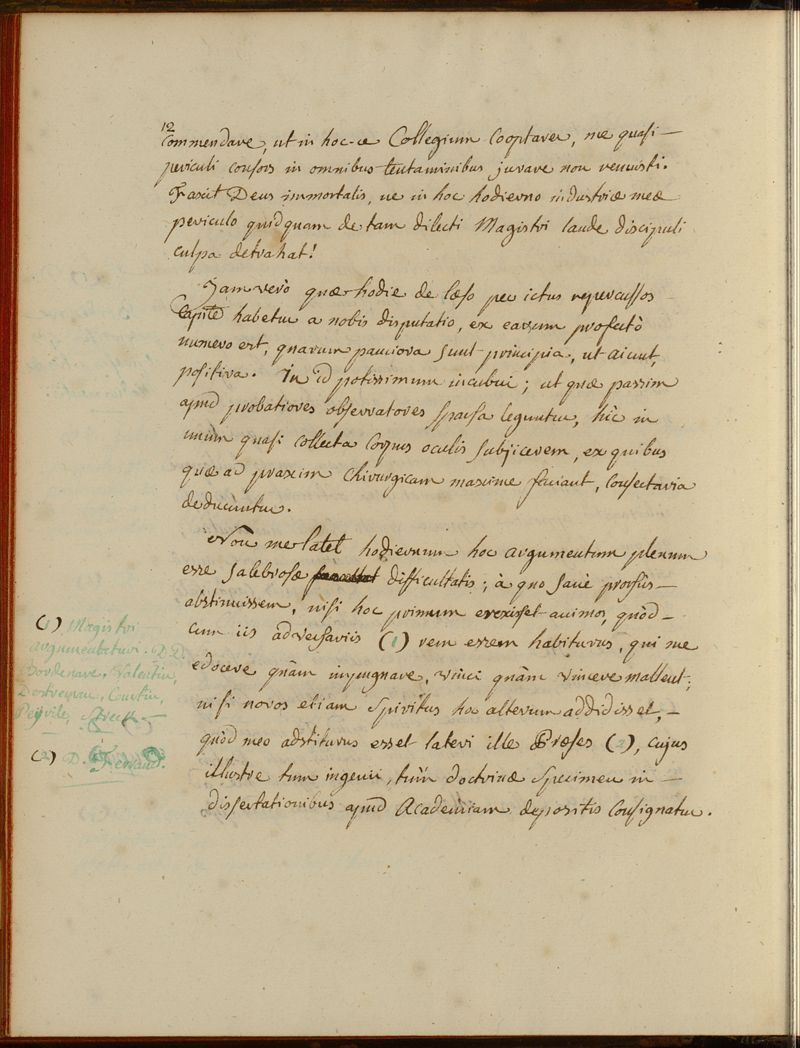 12
commendare, ut in hoc-ce Collegium Cooptarer, me quasi —
periculi consors in omnibus tentaminibus juvare non renuisti.
Faxit Deus immortalis, ne in hoc hodierno industriæ meæ
periculo quidquam de tam dilecti Magistri laude discipuli
culpa detrahat!
Jam verò quæ hodie de læso per ictus repercussos
Capite habetur a nobis disputatio, ex earum profectò
numero est, quarum pauciora sunt principia, ut aiunt,
positiva. In id potissimum incubui; ut quæ passim
apud probatiores observatores sparsa leguntur, hîc in
unum quasi collecta Corpus oculis subjicerem, ex quibus
quæ ad praxim Chirurgicam maxime faciant, Consectaria
deducuntur.
Non me latet hodiernum hoc argumentum plenum
esse salebrosæ difficultatis; à quo sanè prorsùs —
abstinuissem, nisi hoc primum erexisset animos, quòd —
cum iis adversariis (1) rem essem habiturus, qui me
edocere quàm impugnare, vinci quàm vincere mallent;
nisi novos etiam Spiritus hoc alterum addidisset, —
quòd meo adstiturus esset lateri ille Præses (2), cujus
illustre tum ingenii, tùm doctrinæ specimen in —
dissertationibus apud Academiam depositis Consignatur.
(1) Magistri
argumentaturi. D.D.
Bordenave, Valentin,
Dostremau, Courtin,
Peyrile,
(2) D. Ferrand.